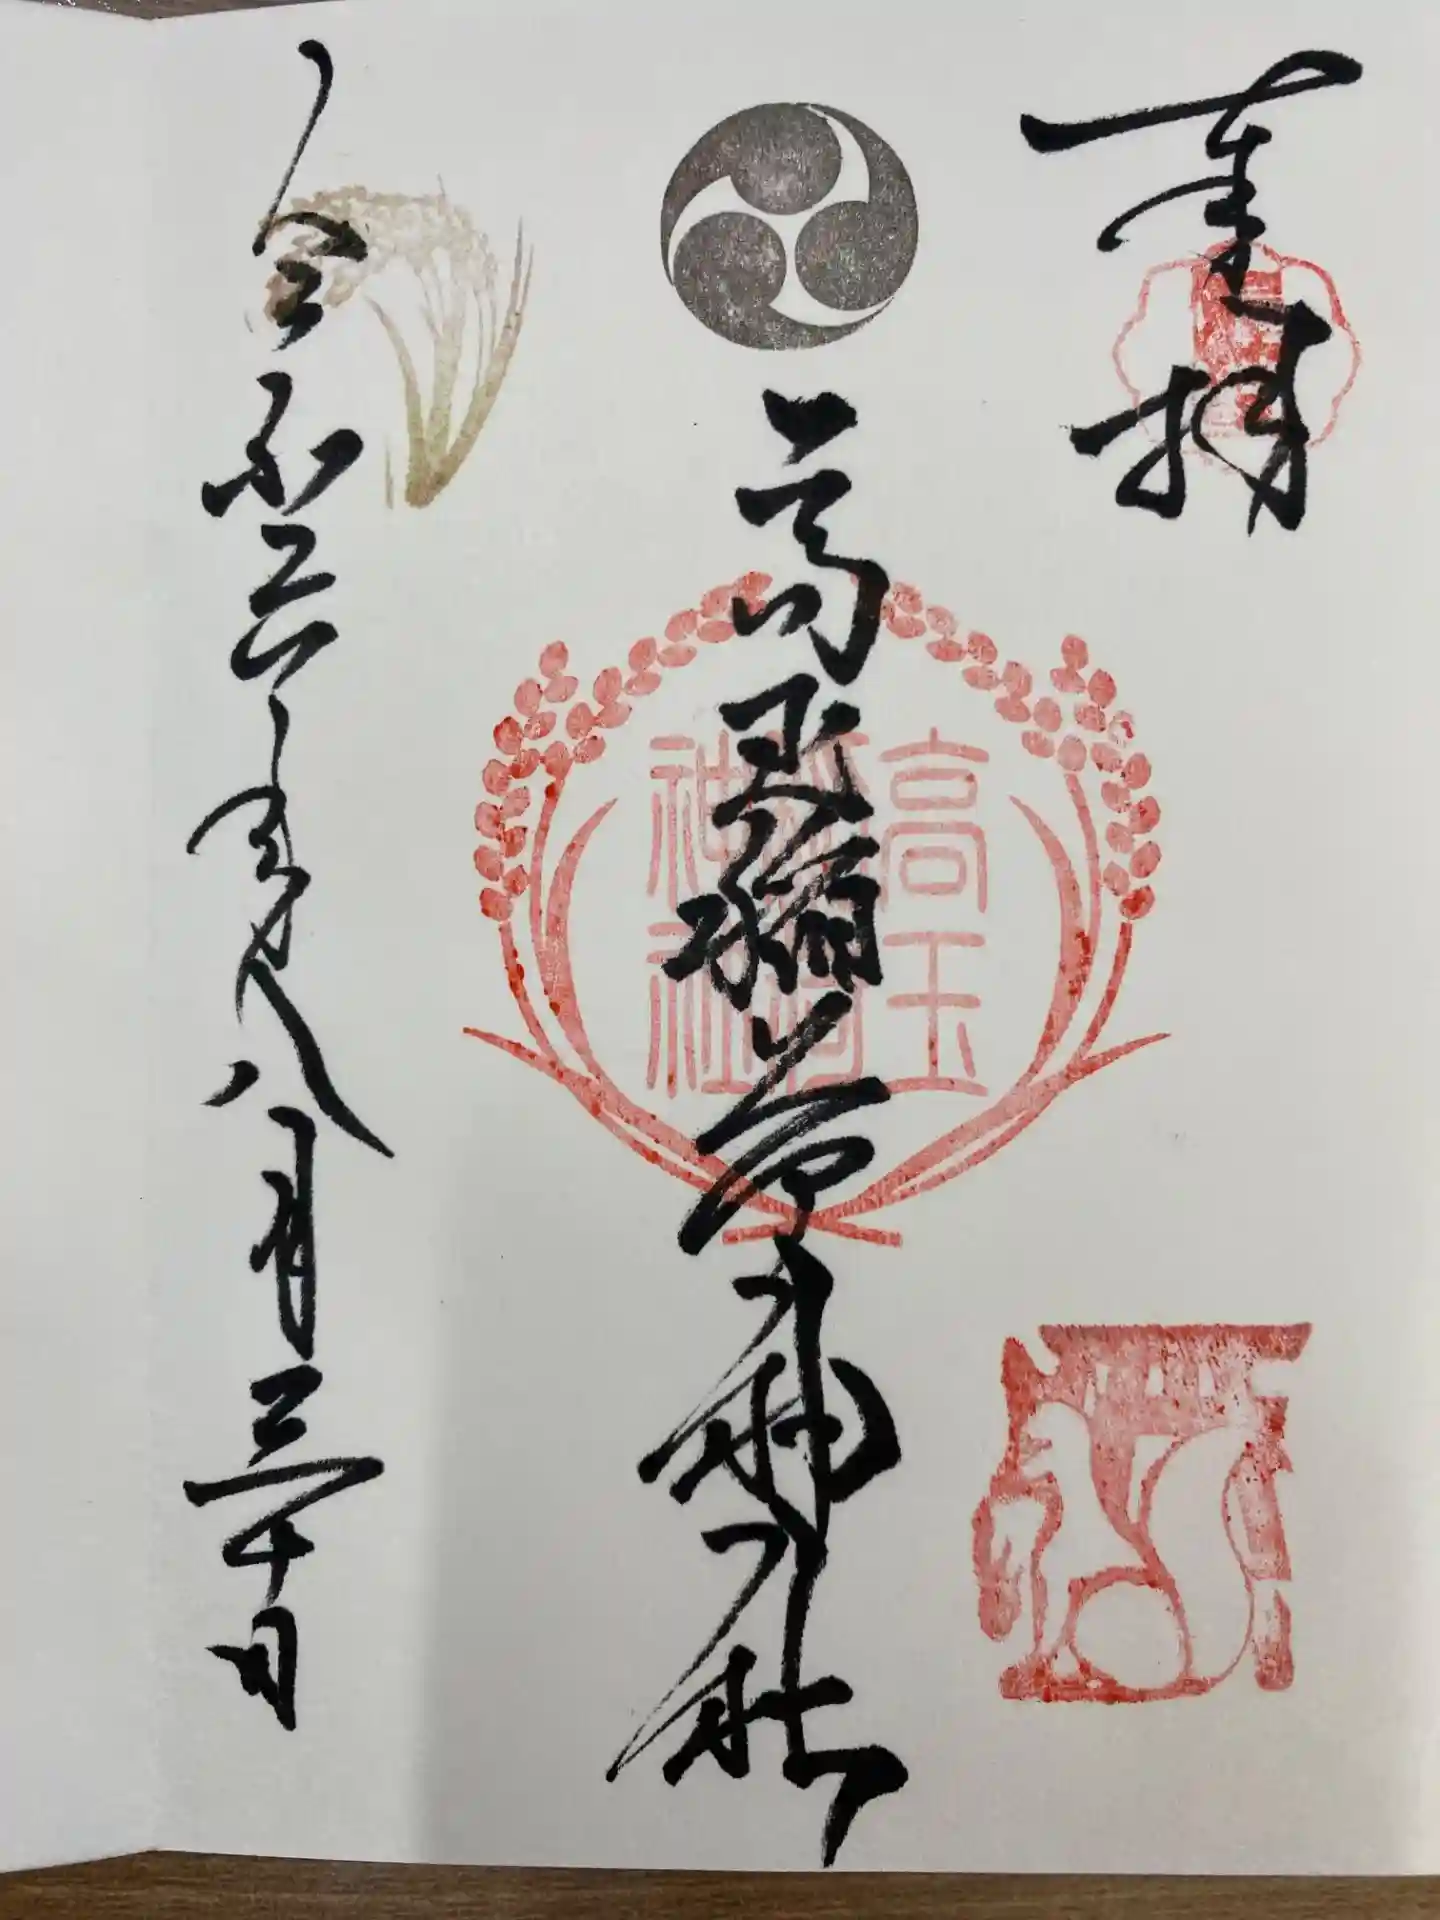 奉拝
高玉稲荷神社
令和六年八月三十日
高玉
稲荷
神社